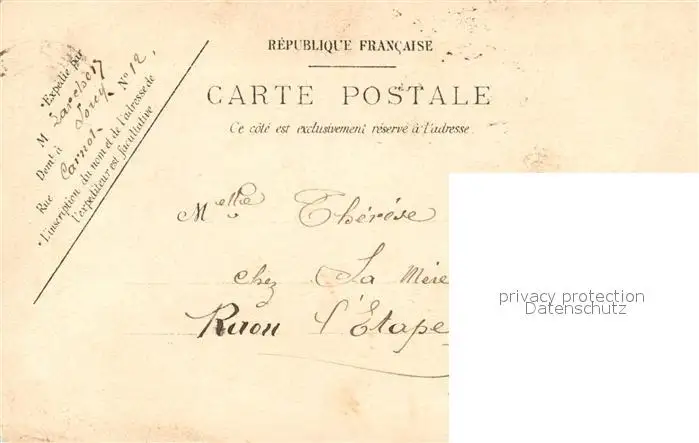 RÉPUBLIQUE FRANÇAISE
CARTE POSTALE
Ce côté est exclusivement réservé à l'adresse.
Expédié par
M
Demt à
Rue Carnot N° 12,
L'inscription du nom et de l'adresse de
l'expéditeur est facultative
Melle Thérèse
chez La Mère
Raon l'Étape
privacy protection
Datenschutz